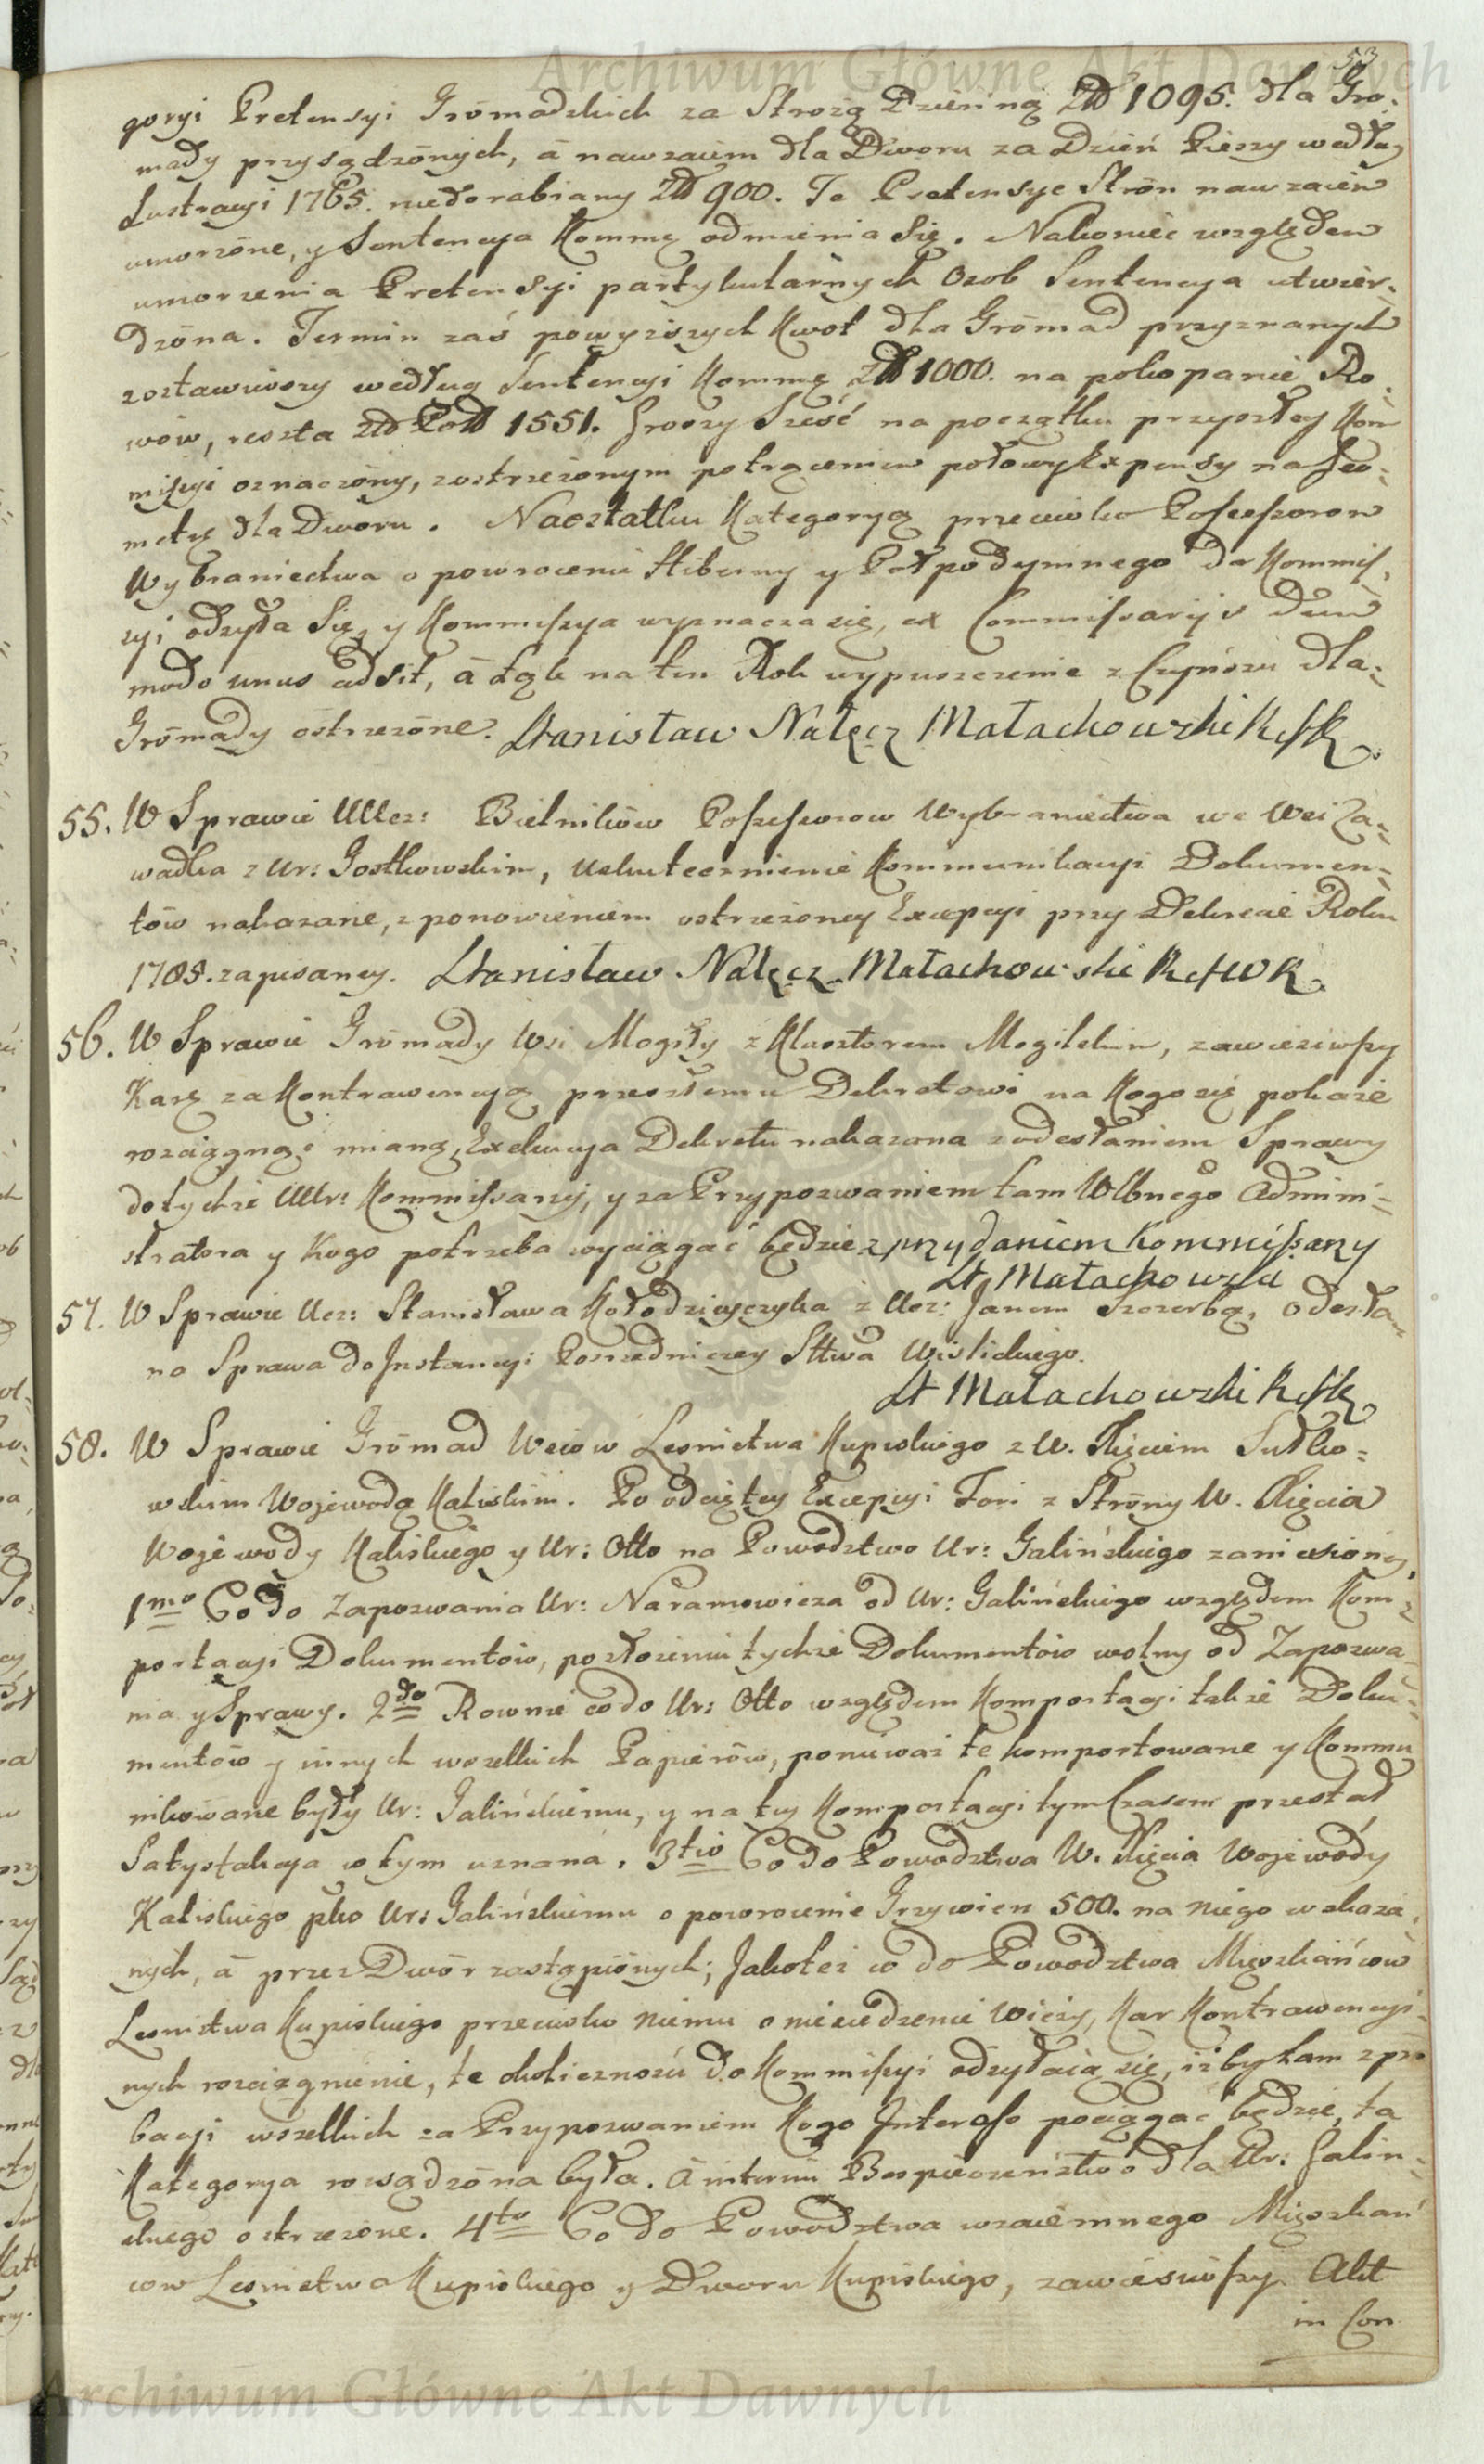 Archiwum Główne Akt Dawnych
53
goryi Pretensyi Gromadzkich za Strożą Dzienną Złł 1095. dla Gro-
mady przysądzonych, á nawzaiem dla Dworu za Dzień Pieszy według
Lustracyi 1765. niedorabiany Złł 900. Te Pretensye Stron nawzaiem
umorzone, y Sentencya Kommę odmienia się. Nakoniec względem
umorzenia Pretensyi partykularnych Osob Sentencya utwier-
dzona. Termin zaś powyższych Kwot dla Gromad przyznanych
zostawiwszy według Sentencyi Kommę Złł 1000. na pokopanie Ro-
wow, reszta Złł Poll 1551. groszy sześć na początku przyszłey Kom
missyi oznaczony, zostrzeżonym potrąceniem połowy Expensy na Jeo-
metrę dla Dworu. Naostatku Kategoryą przeciwko Possessorom
Wybraniectwa o powrocenie Hiberny y Połpodymnego do Kommis-
syi odsyła się, y Kommissya wyznacza się, ex Commissarijs dum
modo unus adsit, á Łąk na ten Rok wypuszczenie z Czynszu dla
Gromady ostrzeżone. Stanisław Nałęcz Małachowski RSK
55. W Sprawie UUcz: Bielnikow Possessorow Wybraniectwa we Wsi Za-
wadka z Ur: Gostkowskim, uskutecznienie Kommunikacyi Dokumen-
tów nakazane, z ponowieniem ostrzeżoney Excepcyi przy Dekrecie Roku
1788. zapisaney. Stanisław Nałęcz Małachowski RefWK
56. W Sprawie Gromady Wsi Mogiły z Klasztorem Mogilskim, zawiesiwszy
Karę za Kontrawencyą przeszłemu Dekretowi na Kogo się pokaże
rozciągnąć mianą, Exekucya Dekretu nakazana z odesłaniem Sprawy
do tychże UUr: Kommissarzy, y za Przypozwaniem tam Wlbnego Admini-
stratora y Kogo potrzeba wyciągać będzie z przydaniem Kommissarzy
St Małachowski
57. W Sprawie Ucz: Stanisława Kołodzieyczyka z Ucz: Janem Szczerbą, odesła
na Sprawa do Instancyi Poszedniczey Sttwa Wislickiego.
St Małachowski RefK
58. W Sprawie Gromad Wsiow Lesnictwa Kupiskiego z W. Xięciem Sułko-
wskim Wojewodą Kaliskim. Po odciętey Excepcyi Fori z Strony W. Xięcia
Wojewody Kaliskiego y Ur: Otto na Powodztwo Ur: Galińskiego zaniesioney,
1mo Co do Zapozwania Ur: Naramowicza od Ur: Galińskiego względem Kom-
portacyi Dokumentow, po złożeniu tychże Dokumentów wolny od Zapozwa-
nia y Sprawy. 2do Rownie co do Ur: Otto względem Komportacyi także Doku-
mentów y innych wszelkich Papierów, ponieważ te komportowane y Kommu
nikowane były Ur: Galińskiemu, y na tey Komportacyi tymczasem przestał
Satysfakcya w tym uznana. 3tio Co do Powodztwa W. Xięcia Wojewody
Kaliskiego pko Ur: Galińskiemu o powrocenie Grzywien 500. na niego wskaza-
nych, á przez Dwór zastąpionych; Jakoteż co do Powodztwa Mięszkańcow
Lesnictwa Kupiskiego przeciwko niemu o niesiedzenie Wieży, Kar Kontrawencyi-
nych rozciągnienie, te okoliczności do Kommissyi odsyłaią się, iżby tam z pro
bacyi wszelkich za Przypozwaniem Kogo Interesso pociągać będzie, ta
Kategorya rozsądzona była. Ainterim Bespieczeństwo dla Ur: Galin-
skiego ostrzeżone. 4to Co do Powodztwa wzaiemnego Mięszkań
cow Lesnictwa Kupiskiego y Dworu Kupiskiego, zawiesiwszy Akt
in Con
Archiwum Główne Akt Dawnych